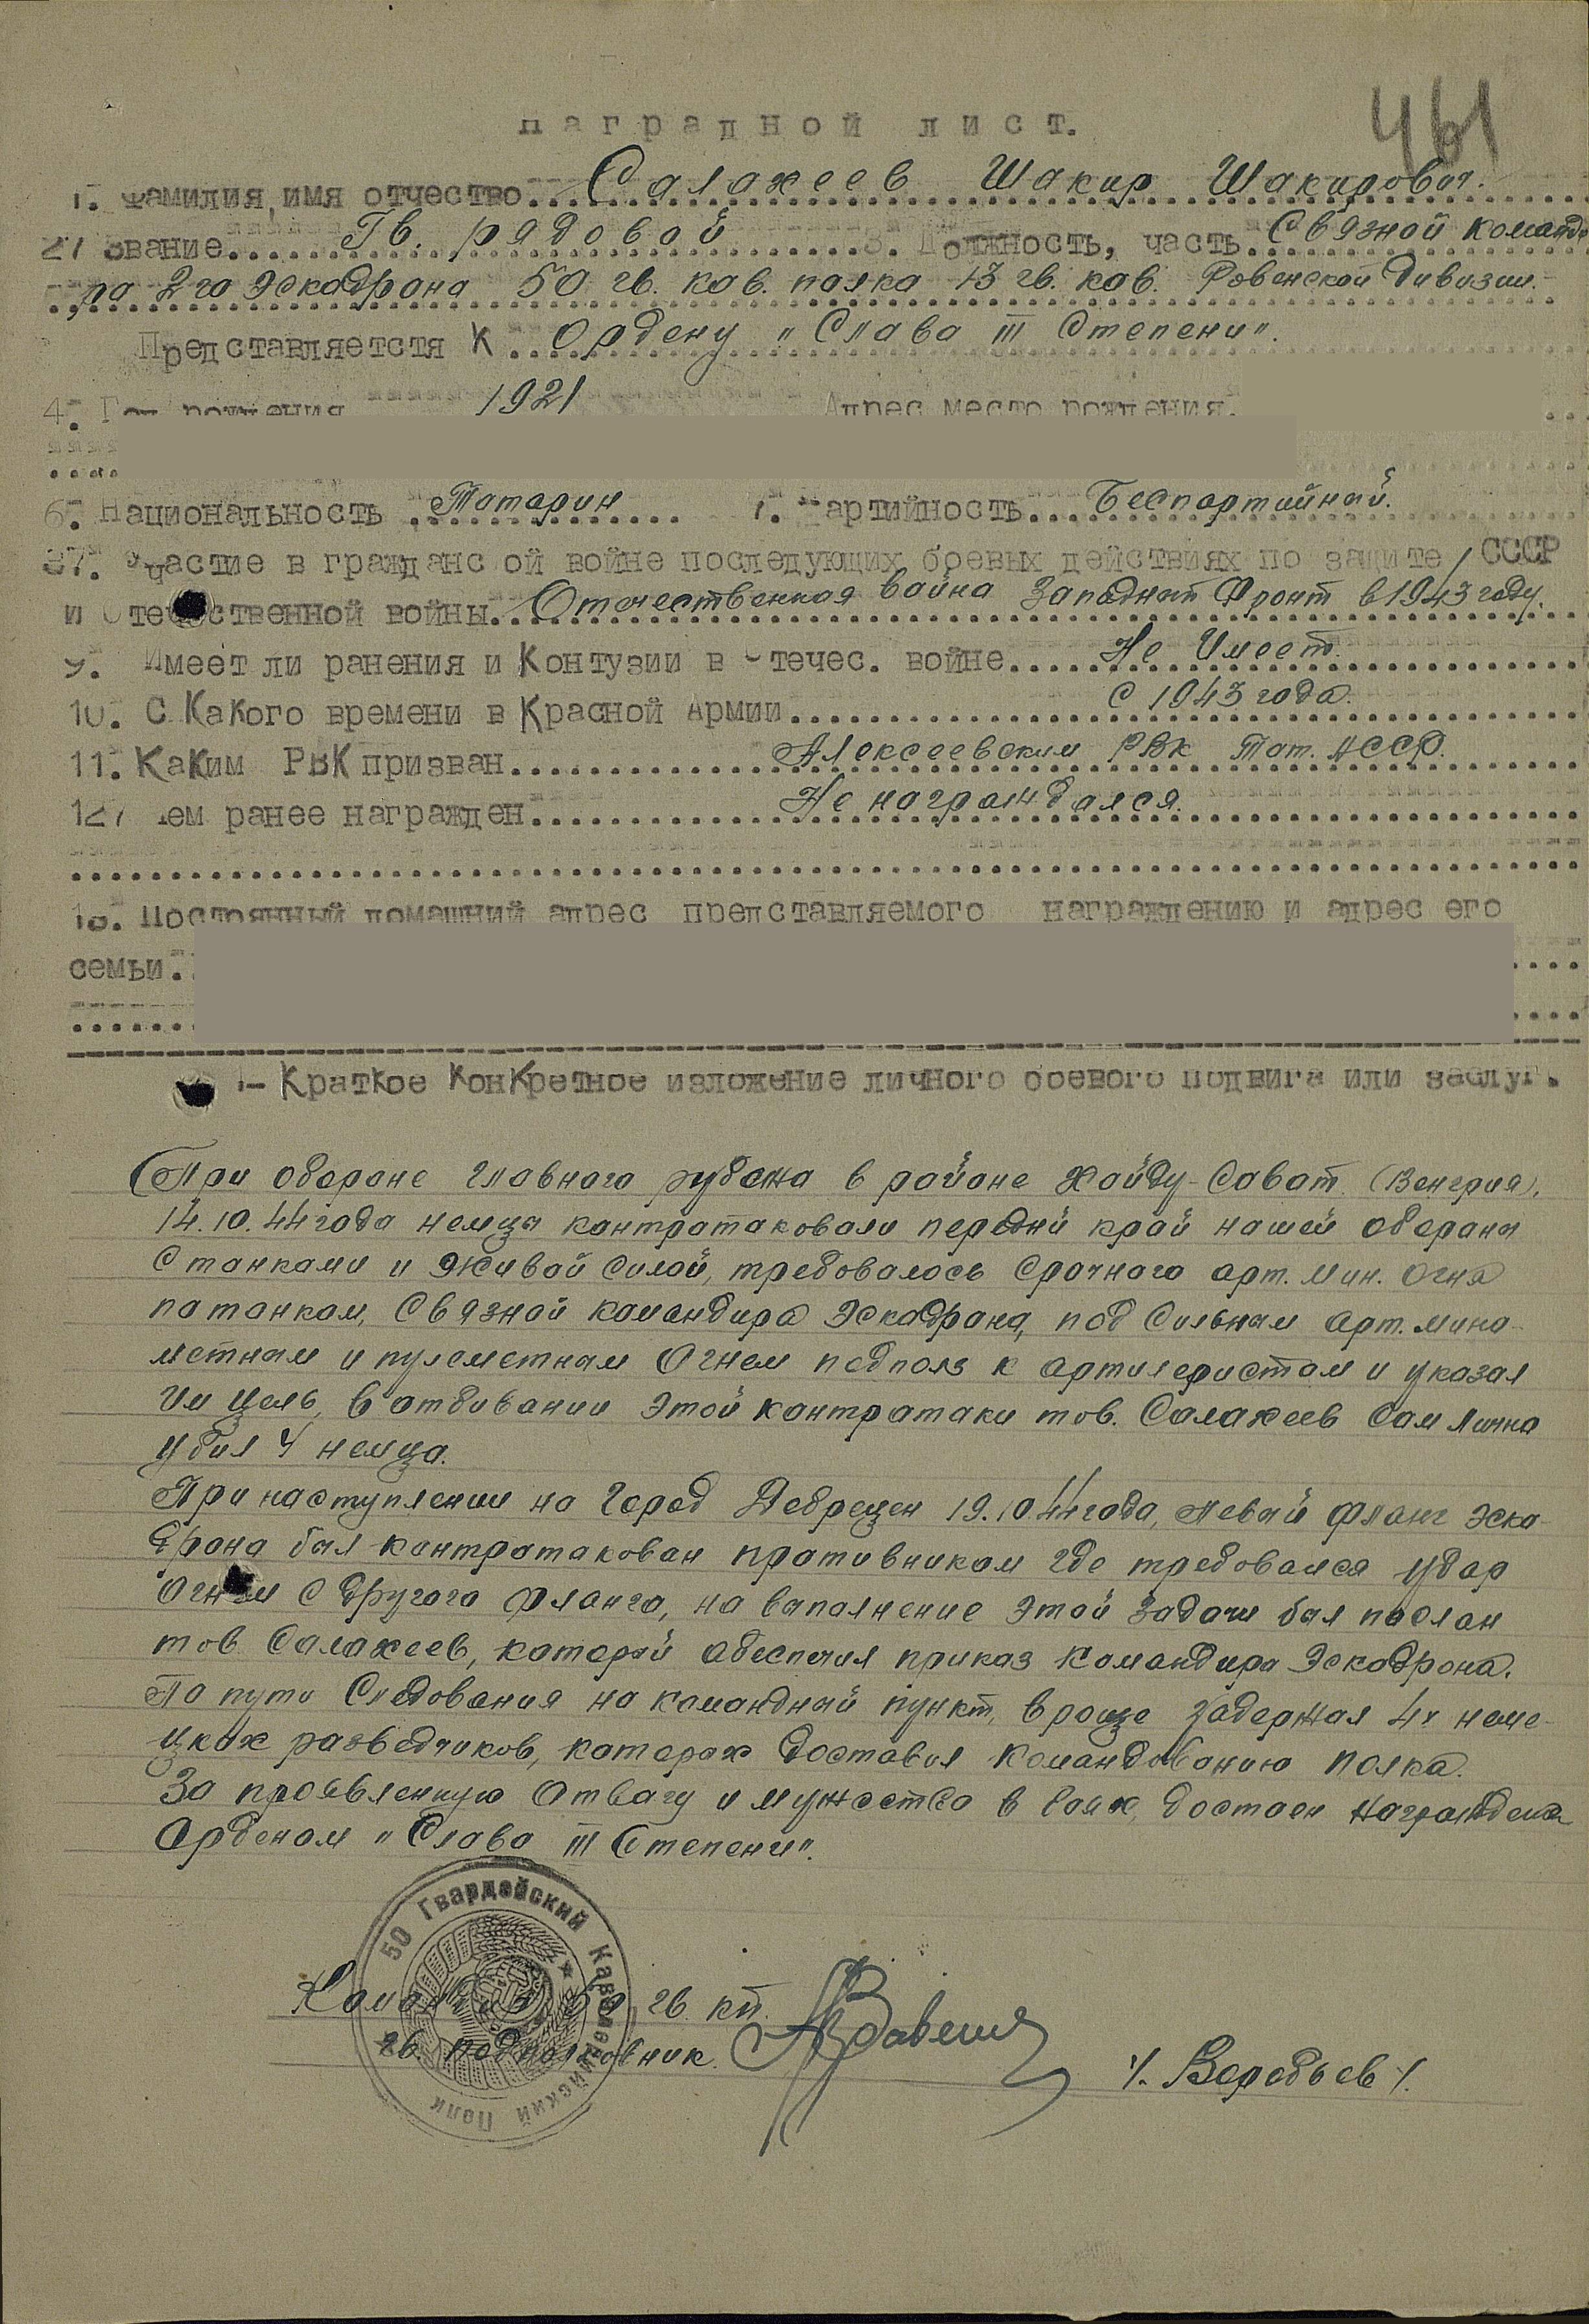 461
Наградной лист.
1. Фамилия, имя отчество... Салахеев Шакир Шакирович.
2. Звание... Гв. рядовой ... 3. Должность, часть. Связной команди-
ра 2го Эскадрона 50 гв. кав. полка 13 гв. кав. Ровенской Дивизии.
Представляетстя К ... Ордену "Слава III Степени".
4. Год рождения 1921 Адрес место рождения.
6. Национальность ... Татарин ... 7. Партийность... Беспартийный.
87. Участие в гражданс ой войне последующих боевых действиях по защите СССР
и Отечественной войны... Отечественная война Западный Фронт в 1943 году.
9. Имеет ли ранения и Контузии в Отечес. войне... Не Имеет.
10. С Какого времени в Красной Армии... с 1943 года.
11. Каким РВК призван... Алексеевским РВК Тат. АССР.
12. Чем ранее награжден... Не награждался.
13. Постоянный домашний адрес представляемого награждению и адрес его
семьи.
1- Краткое Конкретное изложение личного боевого подвига или заслуг.
При обороне главного рубежа в районе Хайду-Сабат (Венгрия).
14.10.44 года немцы контратаковали передний край нашей обороны
С танками и живой силой, требовалось Срочного арт. мин. Огня
по танкам, Связной командира Эскадрона, под Сильным Арт. мино-
метным и пулеметным Огнем подполз к артилеристам и указал
им цель, в отбивании этой контратаки тов. Салахеев Сам Лично
убил 4 немца.
При наступлении на Город Дебрецен 19.10.44 года, левый фланг Эска-
дрона был контратакован противником где требовался удар
Огнем с другого фланга, на выполнение этой задачи был послан
тов. Салахеев, который обеспечил приказ Командира Эскадрона.
По пути Следования на командный пункт, в роще задержал 4х неме-
цких разведчиков, которых доставил Командованию Полка.
За проявленную Отвагу и мужество в боях достоен награждения
Орденом "Слава III Степени".
50 Гвардейский Кавалерийский Полк
Командир 50 гв. кп.
гв. подполковник.
/. Воробьев /.